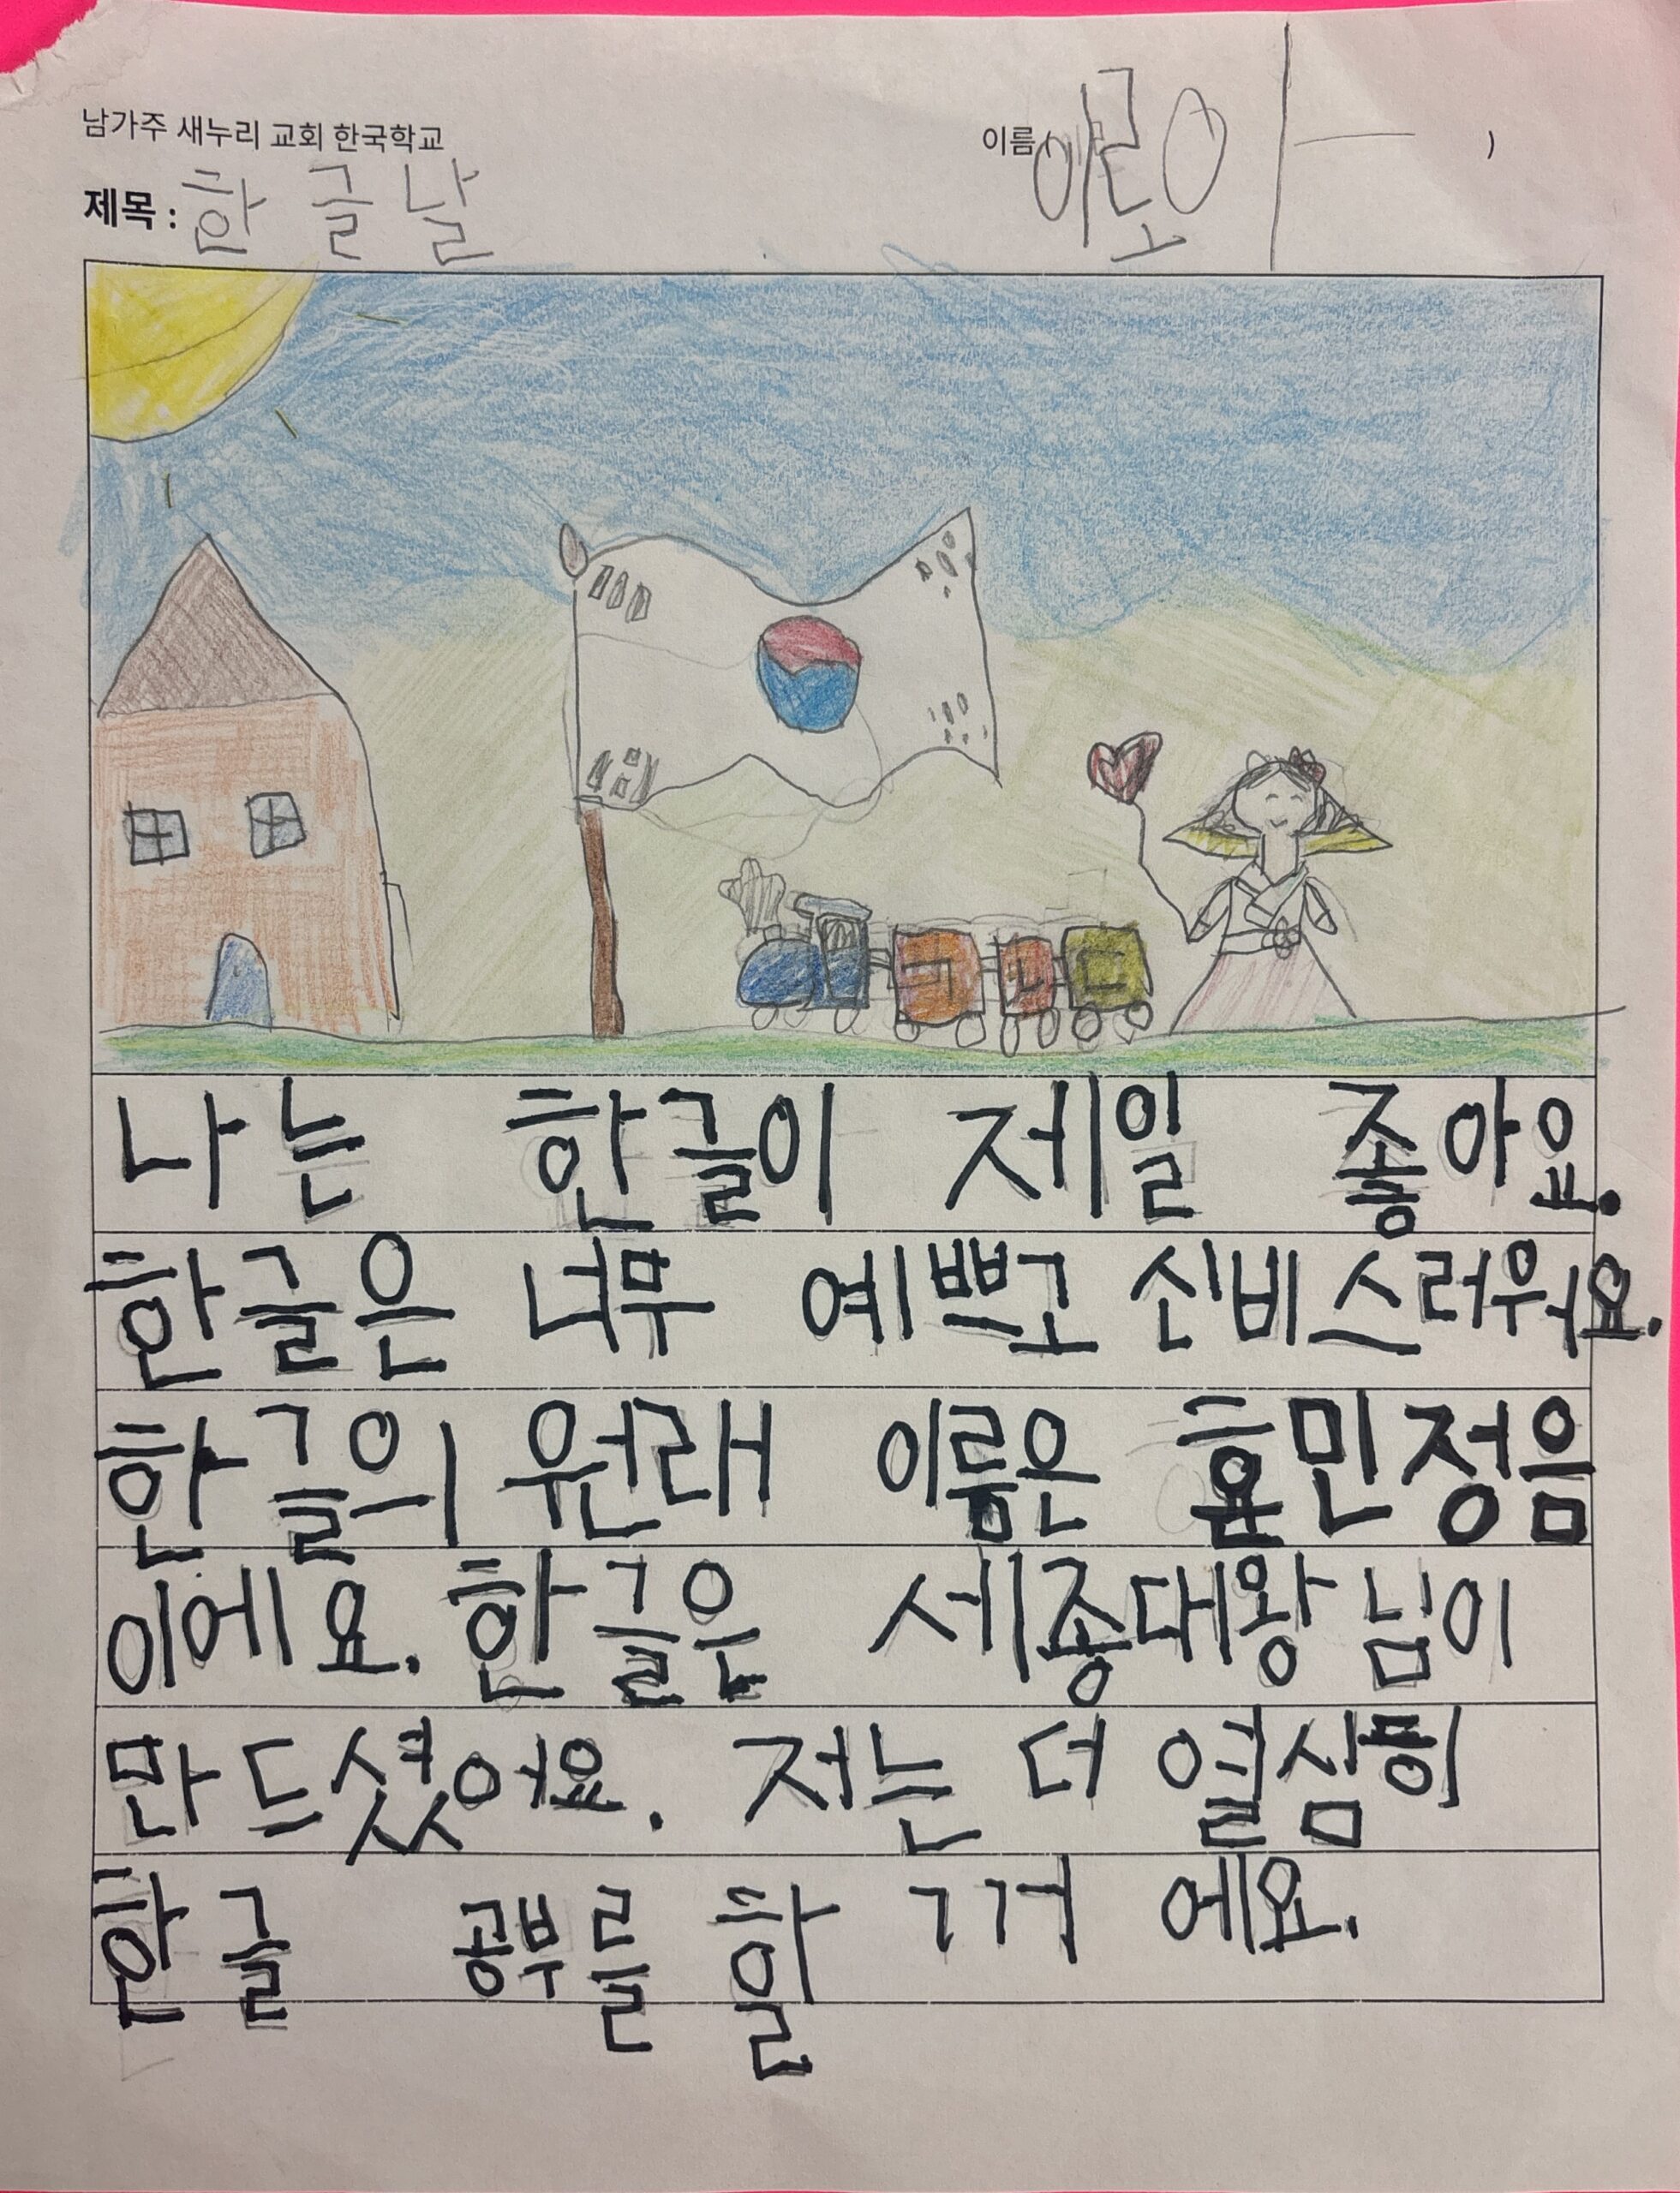 남가주 새누리 교회 한국학교
이름 ( 이로이 )
제목 : 한글날
ㄱ ㄴ ㄷ
나는 한글이 제일 좋아요.
한글은 너무 예쁘고 신비스러워요.
한글의 원래 이름은 훈민정음
이에요. 한글은 세종대왕님이
만드셨어요. 저는 더 열심히
한글 공부를 할 꺼 에요.